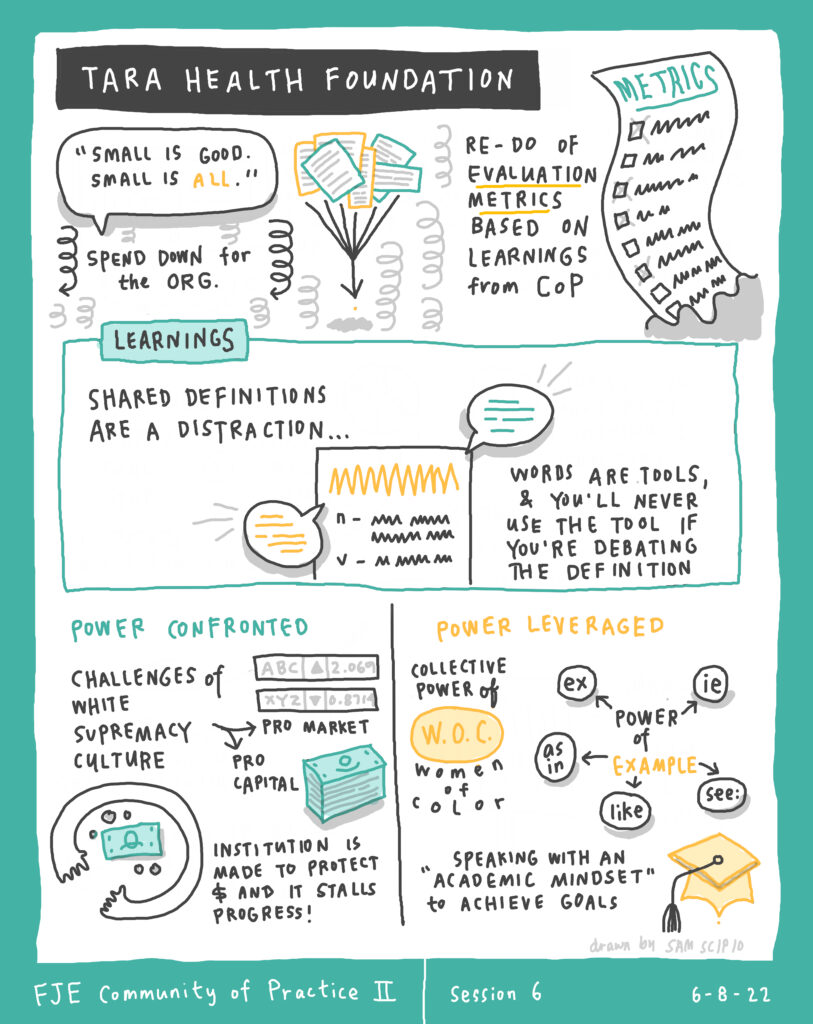 TARA HEALTH FOUNDATION
"SMALL IS GOOD.
SMALL IS ALL."
SPEND DOWN for
the ORG.
RE-DO OF
EVALUATION
METRICS
BASED ON
LEARNINGS
from CoP
METRICS
LEARNINGS
SHARED DEFINITIONS
ARE A DISTRACTION...
n -
v -
WORDS ARE TOOLS,
& YOU'LL NEVER
USE THE TOOL IF
YOU'RE DEBATING
THE DEFINITION
POWER CONFRONTED
CHALLENGES of
WHITE
SUPREMACY
CULTURE
ABC ▲ 2.069
XYZ ▼ 0.8714
PRO MARKET
PRO
CAPITAL
INSTITUTION IS
MADE TO PROTECT
$ AND IT STALLS
PROGRESS!
POWER LEVERAGED
COLLECTIVE
POWER of
W.O.C.
women
of
color
ex
ie
POWER
of
EXAMPLE
as
in
like
see:
"SPEAKING WITH AN
ACADEMIC MINDSET"
to ACHIEVE GOALS
drawn by SAM SCIPIO
FJE Community of Practice II
Session 6
6-8-22